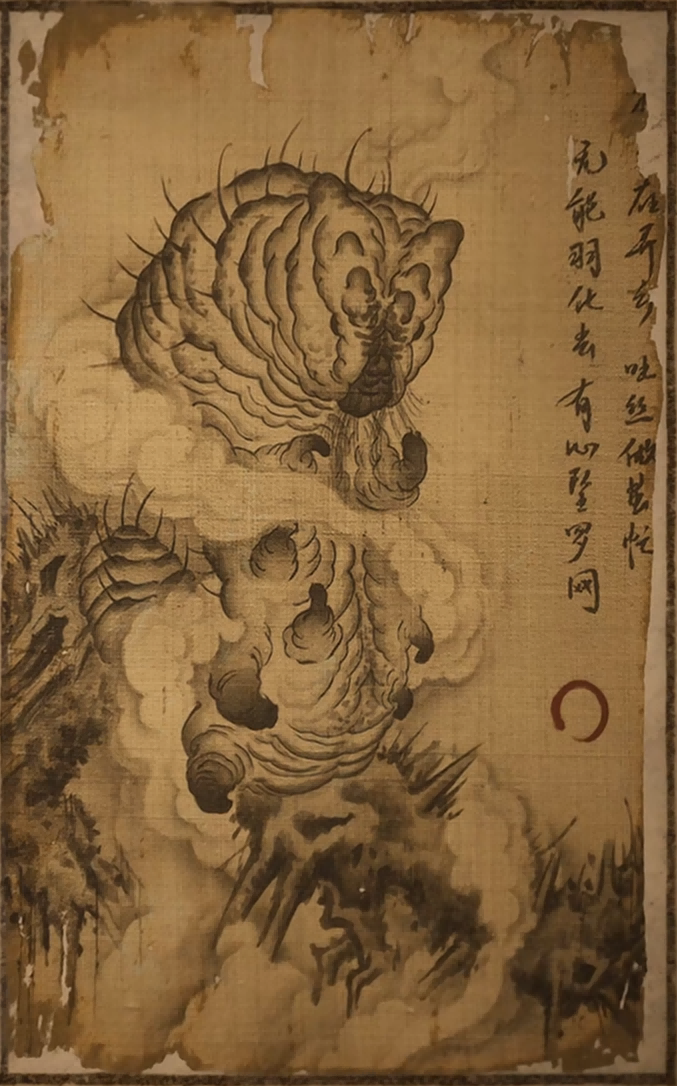 在弄玄 吐丝做茧忙
无能羽化去 有心坠罗网